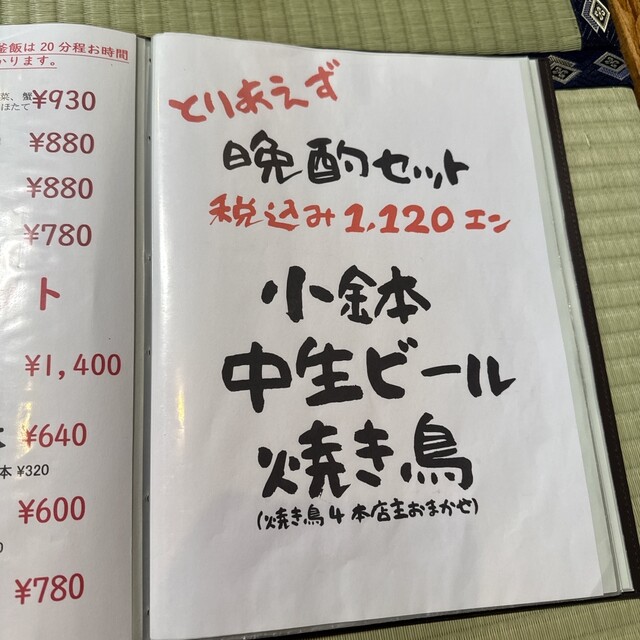 釜飯は20分程お時間
かります。
菜、蟹
ほたて
¥930
¥880
¥880
¥780
ト
¥1,400
¥640
本 ¥320
¥600
¥780
とりあえず
晩酌セット
税込み1,120エン
小鉢
中生ビール
焼き鳥
(焼き鳥4本店主おまかせ)